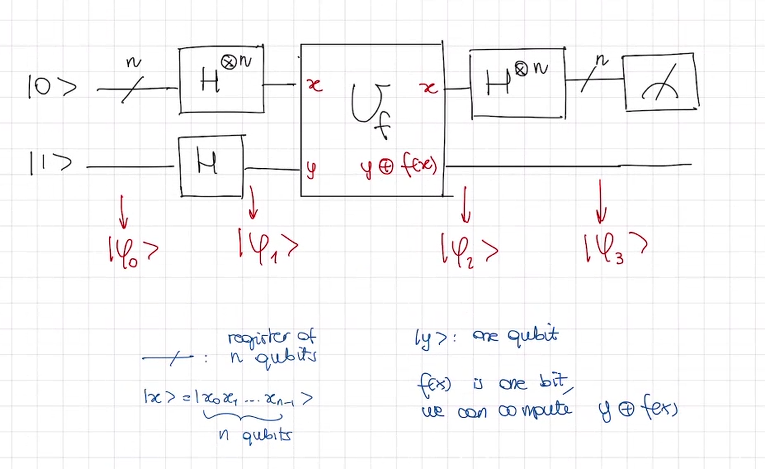 n n
|0> H⊗n x x H⊗n
U_f
|1> H y y ⊕ f(x)
|φ₀> |φ₁> |φ₂> |φ₃>
register of
: n qubits
|x> = |x₀x₁ ... xₙ₋₁>
n qubits
|y> : one qubit
f(x) is one bit,
we can compute y ⊕ f(x)